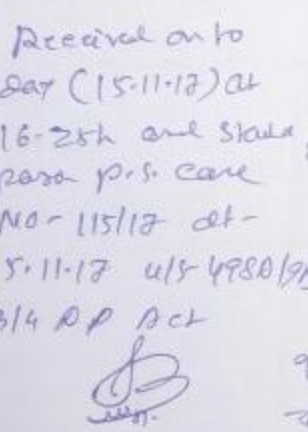 Received on to
day (15.11.17) at
16-25h and
p.s. case
No - 115/17 dt -
5.11.17 u/s 498A/
3/4 DP Act